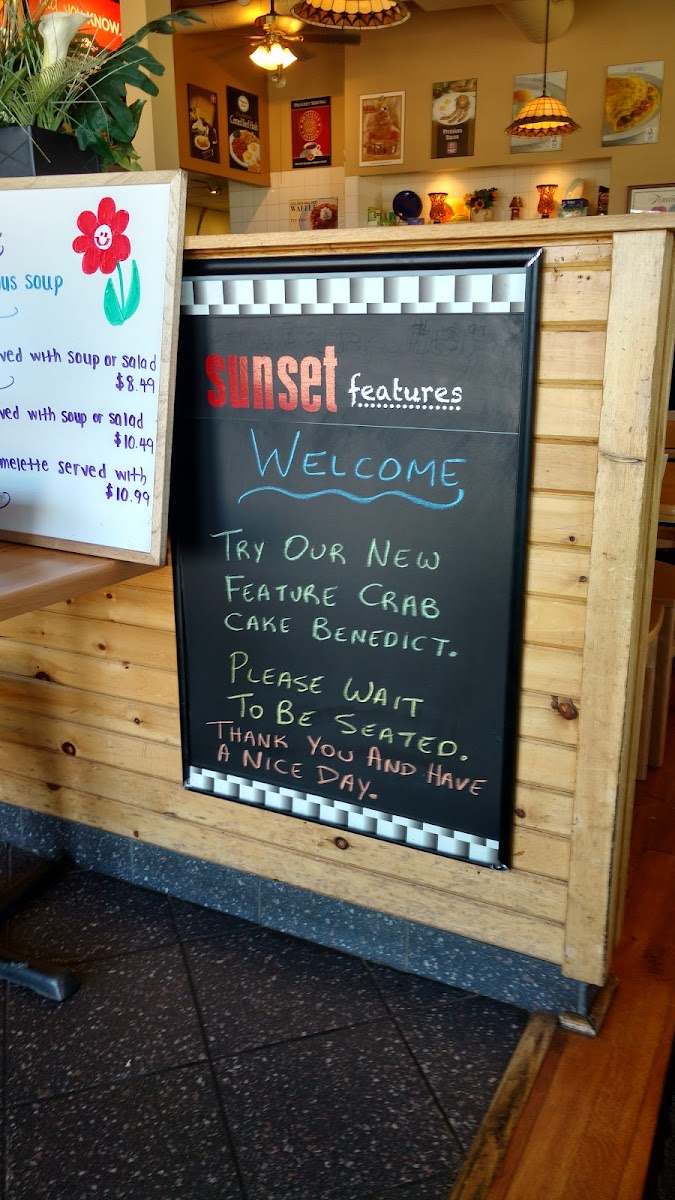 KNOW.
Corned Beef Hash
PROUDLY SERVING
Premium
WAFFLE
us soup
ved with soup or salad
$8.49
ved with soup or salad
$10.49
melette served with
$10.99
sunset features
WELCOME
TRY OUR NEW
FEATURE CRAB
CAKE BENEDICT.
PLEASE WAIT
TO BE SEATED.
THANK YOU AND HAVE
A NICE DAY.